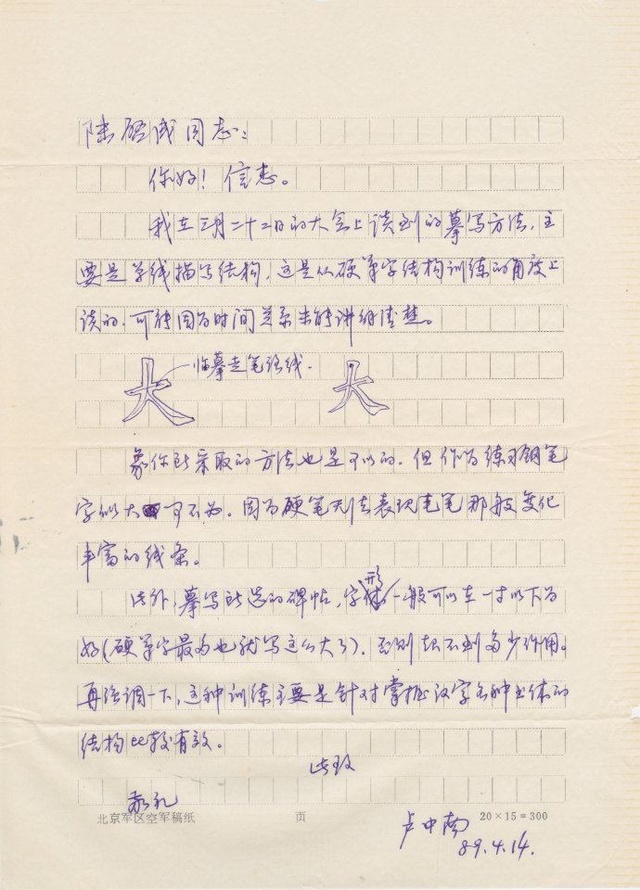 陆启成同志：
你好！信悉。
我在三月二十二日的大会上谈到的摹写方法，主
要是单线描写结构，这是从硬笔字结构训练的角度上
谈的，可能因为时间关系未能讲得清楚。
大 临摹走笔路线． 大
象你所采取的方法也是可以的，但作为练习钢笔
字似大可不必，因为硬笔无法表现毛笔那般变化
丰富的线条。
此外，摹写所选的碑帖，字形一般可以在一寸以下为
好（硬笔字最多也就写这么大了），否则起不到多少作用。
再强调一下，这种训练主要是针对掌握汉字各种书体的
结构比较有效。
此致
敬礼
卢中南
89.4.14.
北京军区空军稿纸 页 20×15=300